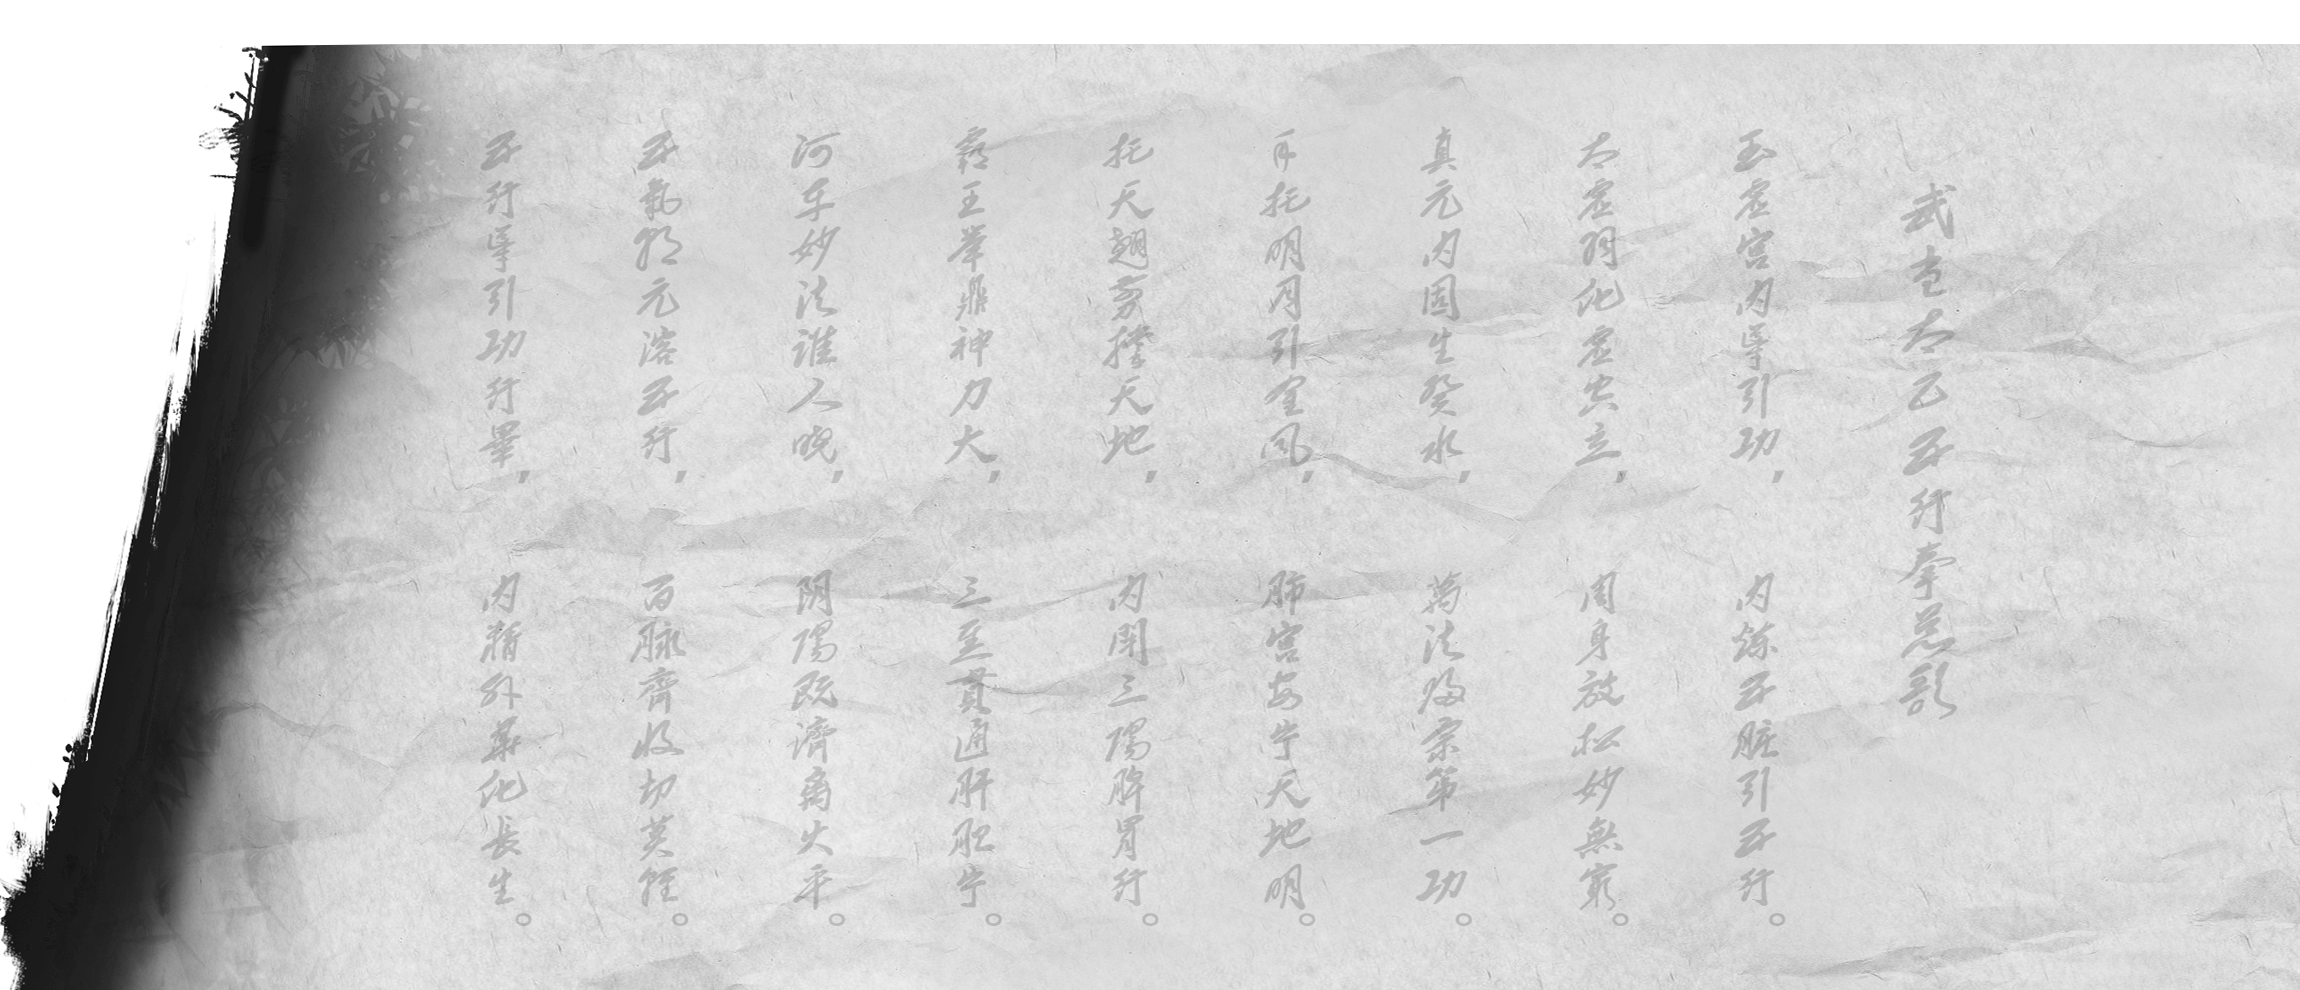 武当太乙五行拳总歌
玉虚宫内导引功，内炼五脏引五行。
太虚羽化虚空立，周身放松妙無窮。
真元内固生癸水，萬法归宗第一功。
手托明月引金风，肺宫安宁天地明。
托天翘撑天地，内闭三陽脾胃行。
霸王举鼎神力大，三貫通肝胆宁。
河车妙法谁人晓，阴陽既濟离火平。
五氣朝元溶五行，百脉齊收切莫轻。
五行导引功行畢，内精外華化長生。